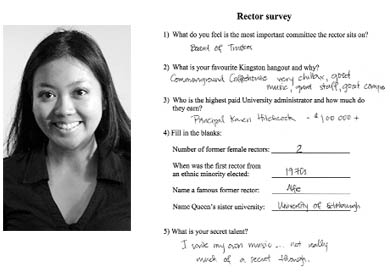 Rector survey
1) What do you feel is the most important committee the rector sits on?
Board of Trustees
2) What is your favourite Kingston hangout and why?
Commonground Coffeehouse very chillax, great
music, good staff, great
3) Who is the highest paid University administrator and how much do
they earn?
Principal Karen Hitchcock - $100 000+
4) Fill in the blanks:
Number of former female rectors: 2
When was the first rector from
an ethnic minority elected: 1970s
Name a famous former rector:
Name Queen's sister university: University of Edinburgh
5) What is your secret talent?
I write my own music... not really
much of a secret though.